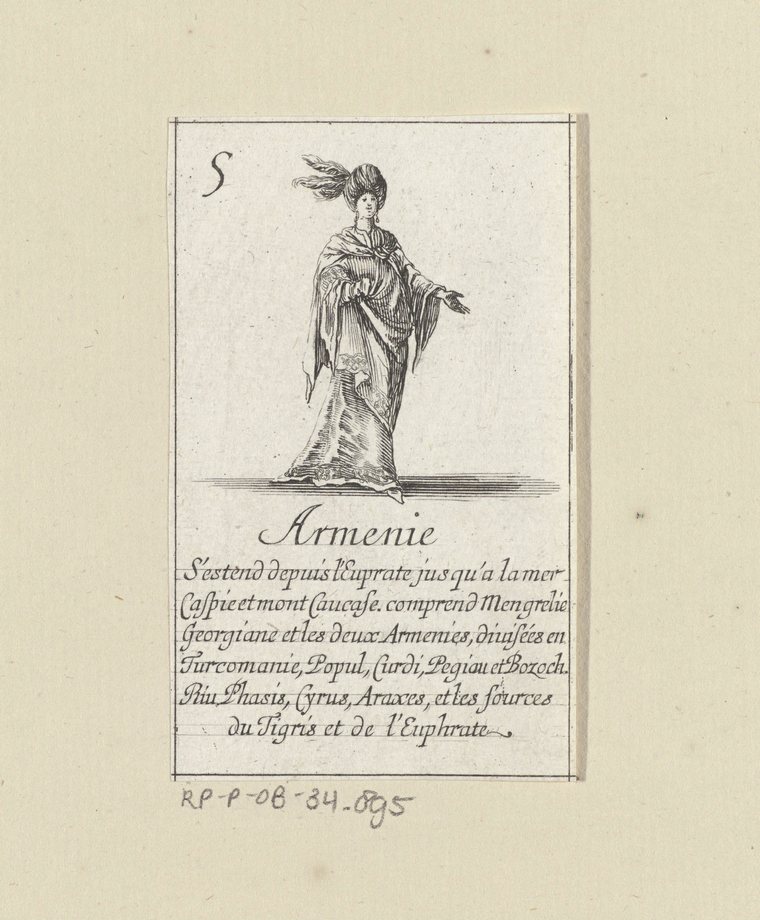 5
Armenie
S'estend depuis l'Euprate jusqu'a la mer
Caspie et mont Caucase. comprend Mengrelie
Georgiane et les deux Armenies, diuisées en
Turcomanie, Popul, Curdi, Pegian et Bozoch.
Riu, Phasis, Cyrus, Araxes, et les sources
du Tigris et de l'Euphrate
RP-P-OB-34-895